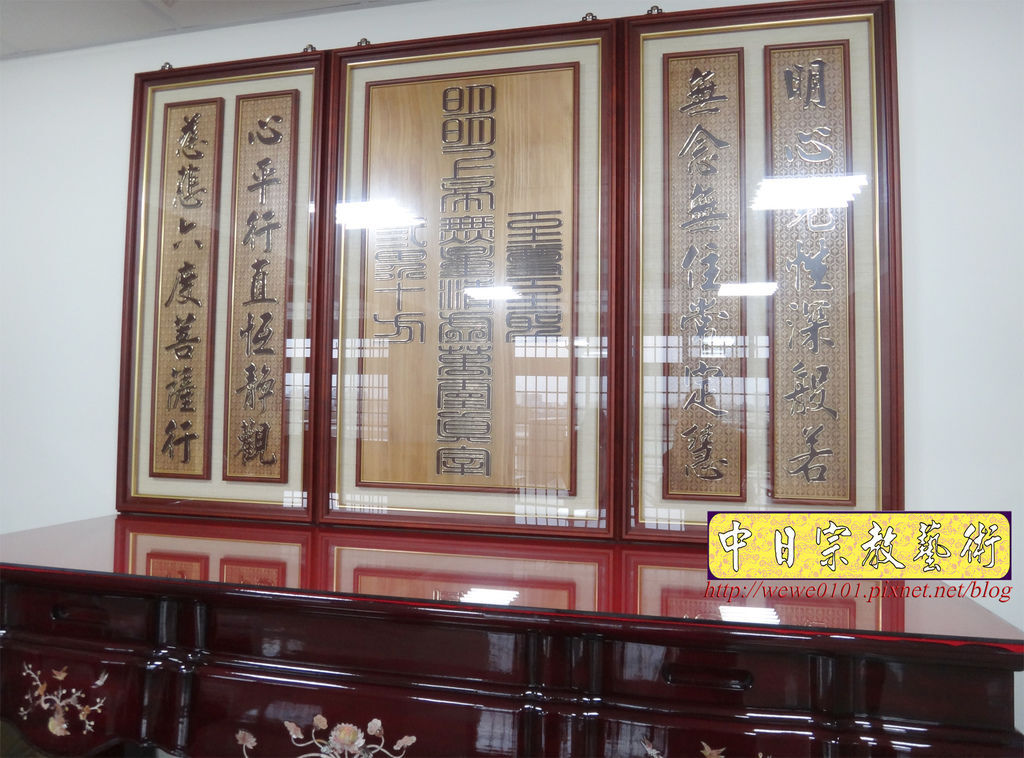 明心見性深般若
無念無住常定慧
至尊至聖
明明上帝無量清虛萬靈真宰
弎界十方
心平行直恆靜觀
慈悲六度菩薩行
中日宗教藝術
http://wewe0101.pixnet.net/blog